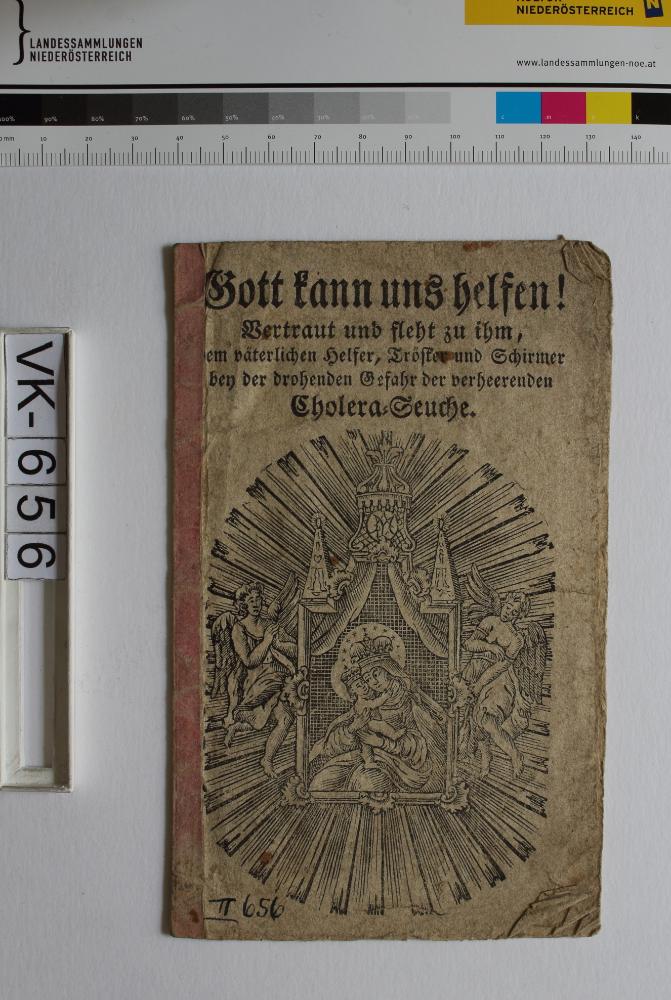 LANDESSAMMLUNGEN
NIEDERÖSTERREICH
NIEDERÖSTERREICH
www.landessammlungen-noe.at
90% 80% 70% 60% 50% 40% 30% 20%
c m y k
0 mm 10 20 30 40 50 60 70 80 90 100 110 120 130 140
VK-656
Gott kann uns helfen!
Vertraut und fleht zu ihm,
em väterlichen Helfer, Tröster und Schirmer
bey der drohenden Gefahr der verheerenden
Cholera-Seuche.
II 656